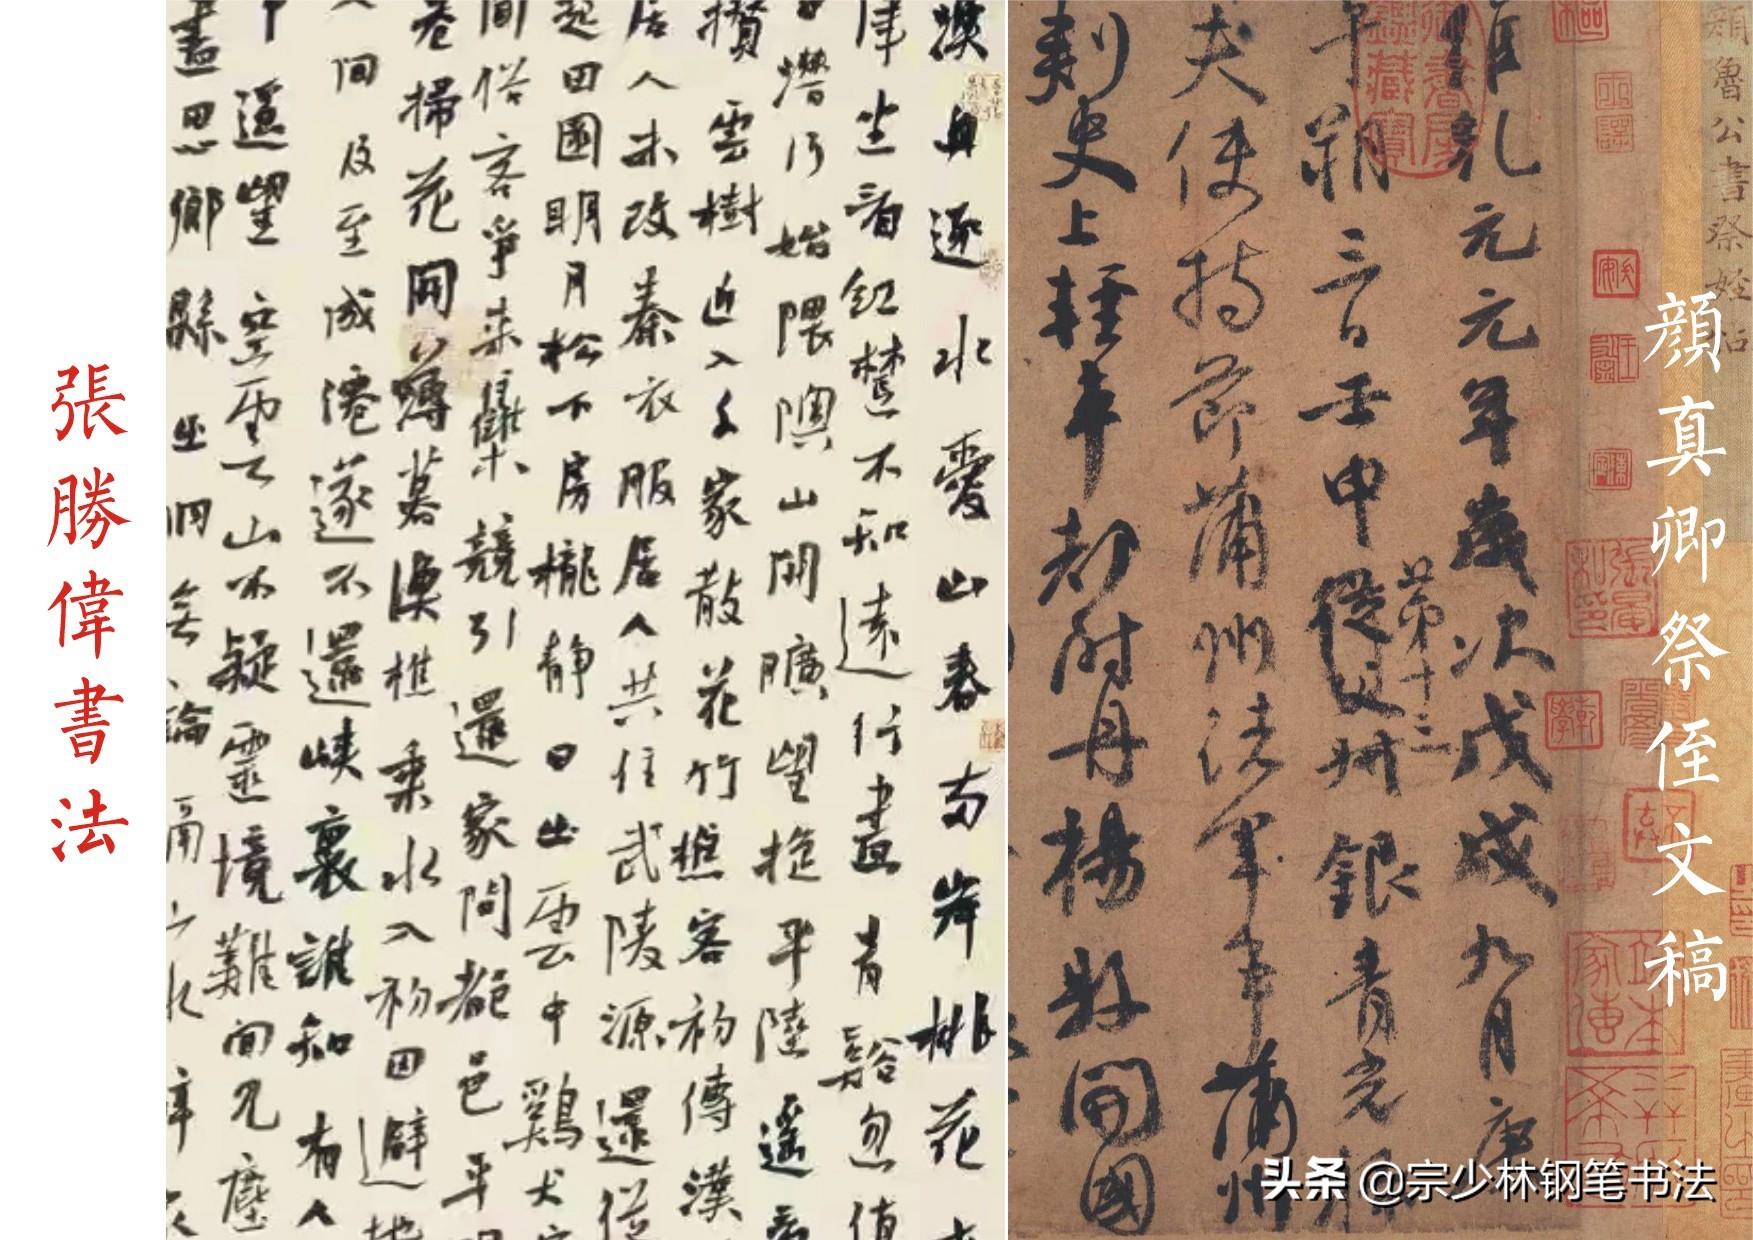 顏魯公書祭姪帖
顏真卿祭侄文稿
維乾元元年歲次戊戌九月庚
午朔三日壬申第十三從父叔銀青光祿
夫使持節蒲州諸軍事蒲州
刺史上輕車都尉丹楊縣開國
漁舟逐水愛山春兩岸桃花
津坐看紅樹不知遠行盡青谿忽值
潛行始隈隩山開曠望旋平陸遙看
攢雲樹近入千家散花竹樵客初傳漢
居人未改秦衣服居人共住武陵源還從
起田園明月松下房櫳靜日出雲中鷄犬
聞俗客爭來集競引還家問都邑平明
巷掃花開薄暮漁樵乘水入初因避地
人間及至成僊遂不還峽裏誰知有人
中遙望空雲山不疑靈境難聞見塵
盡思鄉縣出洞無論隔山水辭家
張勝偉書法
头条 @宗少林钢笔书法